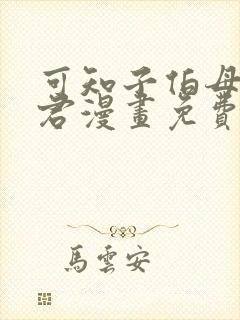 可知子伯母
君漫畫免費
馬雲安